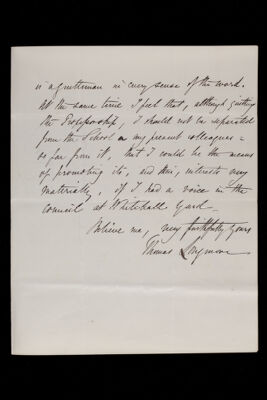 is a gentleman in every sense of the word.
At the same time I feel that, although quitting
the Professorship, I should not be separated
from the School or my present colleagues –
so far from it, that I could be the means
of promoting its, and their, interests very
materially, if I had a voice in the
council at Whitehall Yard –
Believe me, very faithfully yours
Thomas Longmore